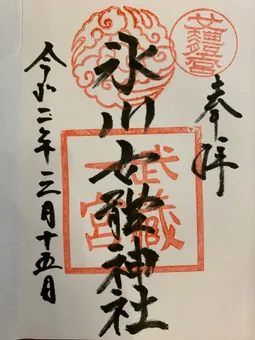 奉拝
氷川女體神社
武蔵
一宮
令和二年三月十五日